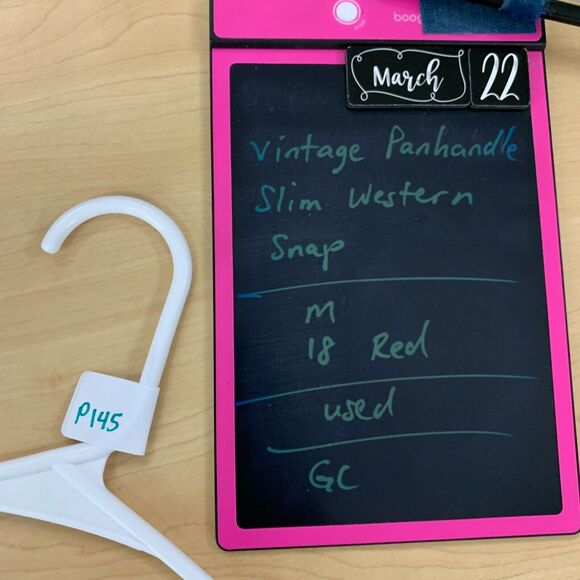 boog
March 22
Vintage Panhandle
Slim Western
Snap
M
18 Red
used
GC
P145